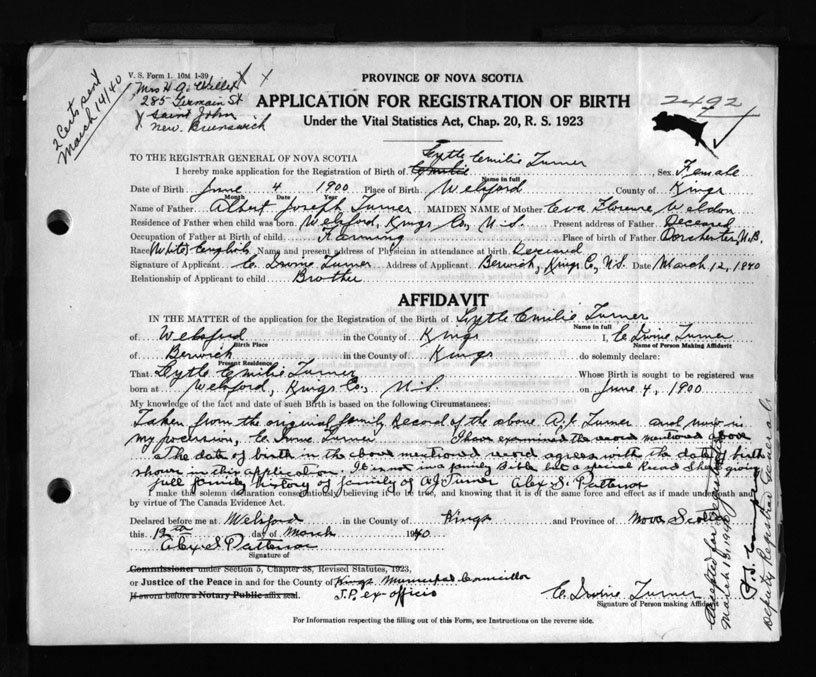 V. S. Form 1. 10M 1-39
2 Certs sent
March 14/40
Mrs H. A. Willet
285 Germain St
Saint John
New. Brunswick
PROVINCE OF NOVA SCOTIA
APPLICATION FOR REGISTRATION OF BIRTH
Under the Vital Statistics Act, Chap. 20, R. S. 1923
2492
TO THE REGISTRAR GENERAL OF NOVA SCOTIA
I hereby make application for the Registration of Birth of Emilie Lyttle Emilie Turner, Sex Female
Name in full
Date of Birth June 4 1900 Place of Birth Welsford County of Kings
Month Date Year
Name of Father Albert Joseph Turner MAIDEN NAME of Mother Eva Florence Weldon
Residence of Father when child was born Welsford, Kings Co, N.S. Present address of Father Deceased
Occupation of Father at Birth of child Farming Place of birth of Father Dorchester, N.B.
Race White English Name and present address of Physician in attendance at birth Deceased
Signature of Applicant C. Irvine Turner Address of Applicant Berwick, Kings Co, N.S. Date March 12, 1940
Relationship of Applicant to child Brother
AFFIDAVIT
IN THE MATTER of the application for the Registration of the Birth of Lyttle Emilie Turner
Name in full
of Welsford in the County of Kings I, C Irvine Turner
Birth Place Name of Person Making Affidavit
of Berwick in the County of Kings do solemnly declare:
Present Residence
That Lyttle Emilie Turner Whose Birth is sought to be registered was
born at Welsford, Kings Co, N.S. on June 4, 1900
My knowledge of the fact and date of such Birth is based on the following Circumstances:
Taken from the original family Record of the above A. J. Turner and now in
my possession, C. Irvine Turner I have examined the record mentioned above
& the date of birth in the above mentioned record agrees with the date of birth
shown in this application. It is not in a family Bible but a special Record Sheet giving
full family history of family of A J Turner Alex S. Patterson
I make this solemn declaration conscientiously believing it to be true, and knowing that it is of the same force and effect as if made under oath and
by virtue of The Canada Evidence Act.
Declared before me at Welsford in the County of Kings and Province of Nova Scotia
this 12th day of March 1940
Alex S Patterson
Signature of
Commissioner under Section 5, Chapter 38, Revised Statutes, 1923,
or Justice of the Peace in and for the County of Kings Municipal Councillor
If sworn before a Notary Public affix seal. J.P. ex-officio
C. Irvine Turner
Signature of Person making Affidavit
For Information respecting the filling out of this Form, see Instructions on the reverse side.
Accepted for Registration
March 13, 1940
Deputy Registrar General